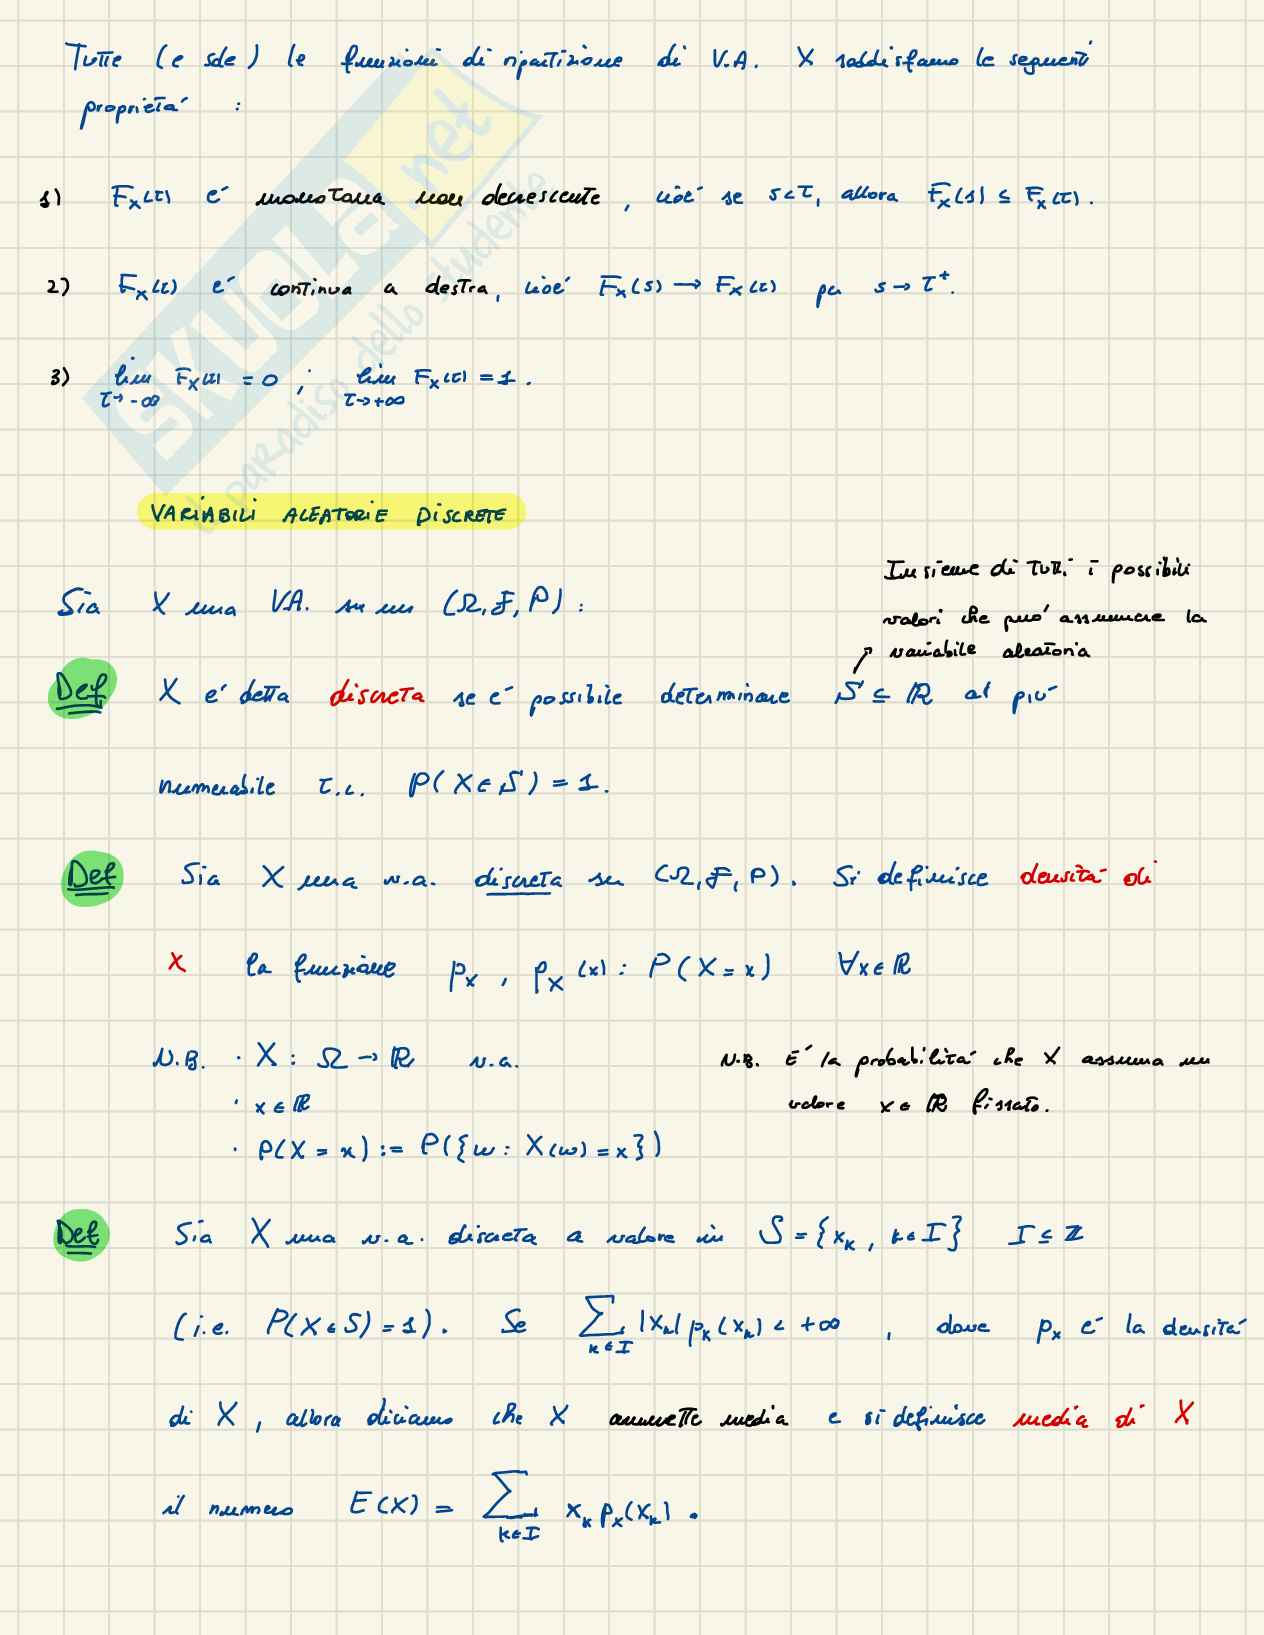 Tutte (e sole) le funzioni di ripartizione di V.A. X soddisfano le seguenti
proprietá :
1) F_X(t) é monotona non decrescente, cioé se s<t, allora F_X(s) ≤ F_X(t).
2) F_X(t) é continua a destra, cioé F_X(s) → F_X(t) per s → t⁺.
3) lim_{t→-∞} F_X(t) = 0 ; lim_{t→+∞} F_X(t) = 1.
VARIABILI ALEATORIE DISCRETE
Sia X una V.A. su un (Ω, F, P) :
Insieme di tutti i possibili
valori che puó assumere la
variabile aleatoria
Def X é detta discreta se é possibile determinare S ⊆ ℝ al piú
numerabile t.c. P(X ∈ S) = 1.
Def Sia X una v.a. discreta su (Ω, F, P). Si definisce densitá di
X la funzione p_X , p_X(x) : P(X = x) ∀x ∈ ℝ
N.B. · X : Ω → ℝ v.a.
· x ∈ ℝ
· P(X = x) := P({w : X(w) = x})
N.B. É la probabilitá che X assuma un
valore x ∈ ℝ fissato.
Def Sia X una v.a. discreta a valore in S = {x_k , k ∈ I} I ⊆ ℤ
(i.e. P(X ∈ S) = 1). Se ∑_{k ∈ I} |x_k| p_x(x_k) < +∞ , dove p_x é la densitá
di X , allora diciamo che X ammette media e si definisce media di X
il numero E(X) = ∑_{k∈I} x_k p_x(x_k) .
SKUOLA.net
il paradiso dello studente